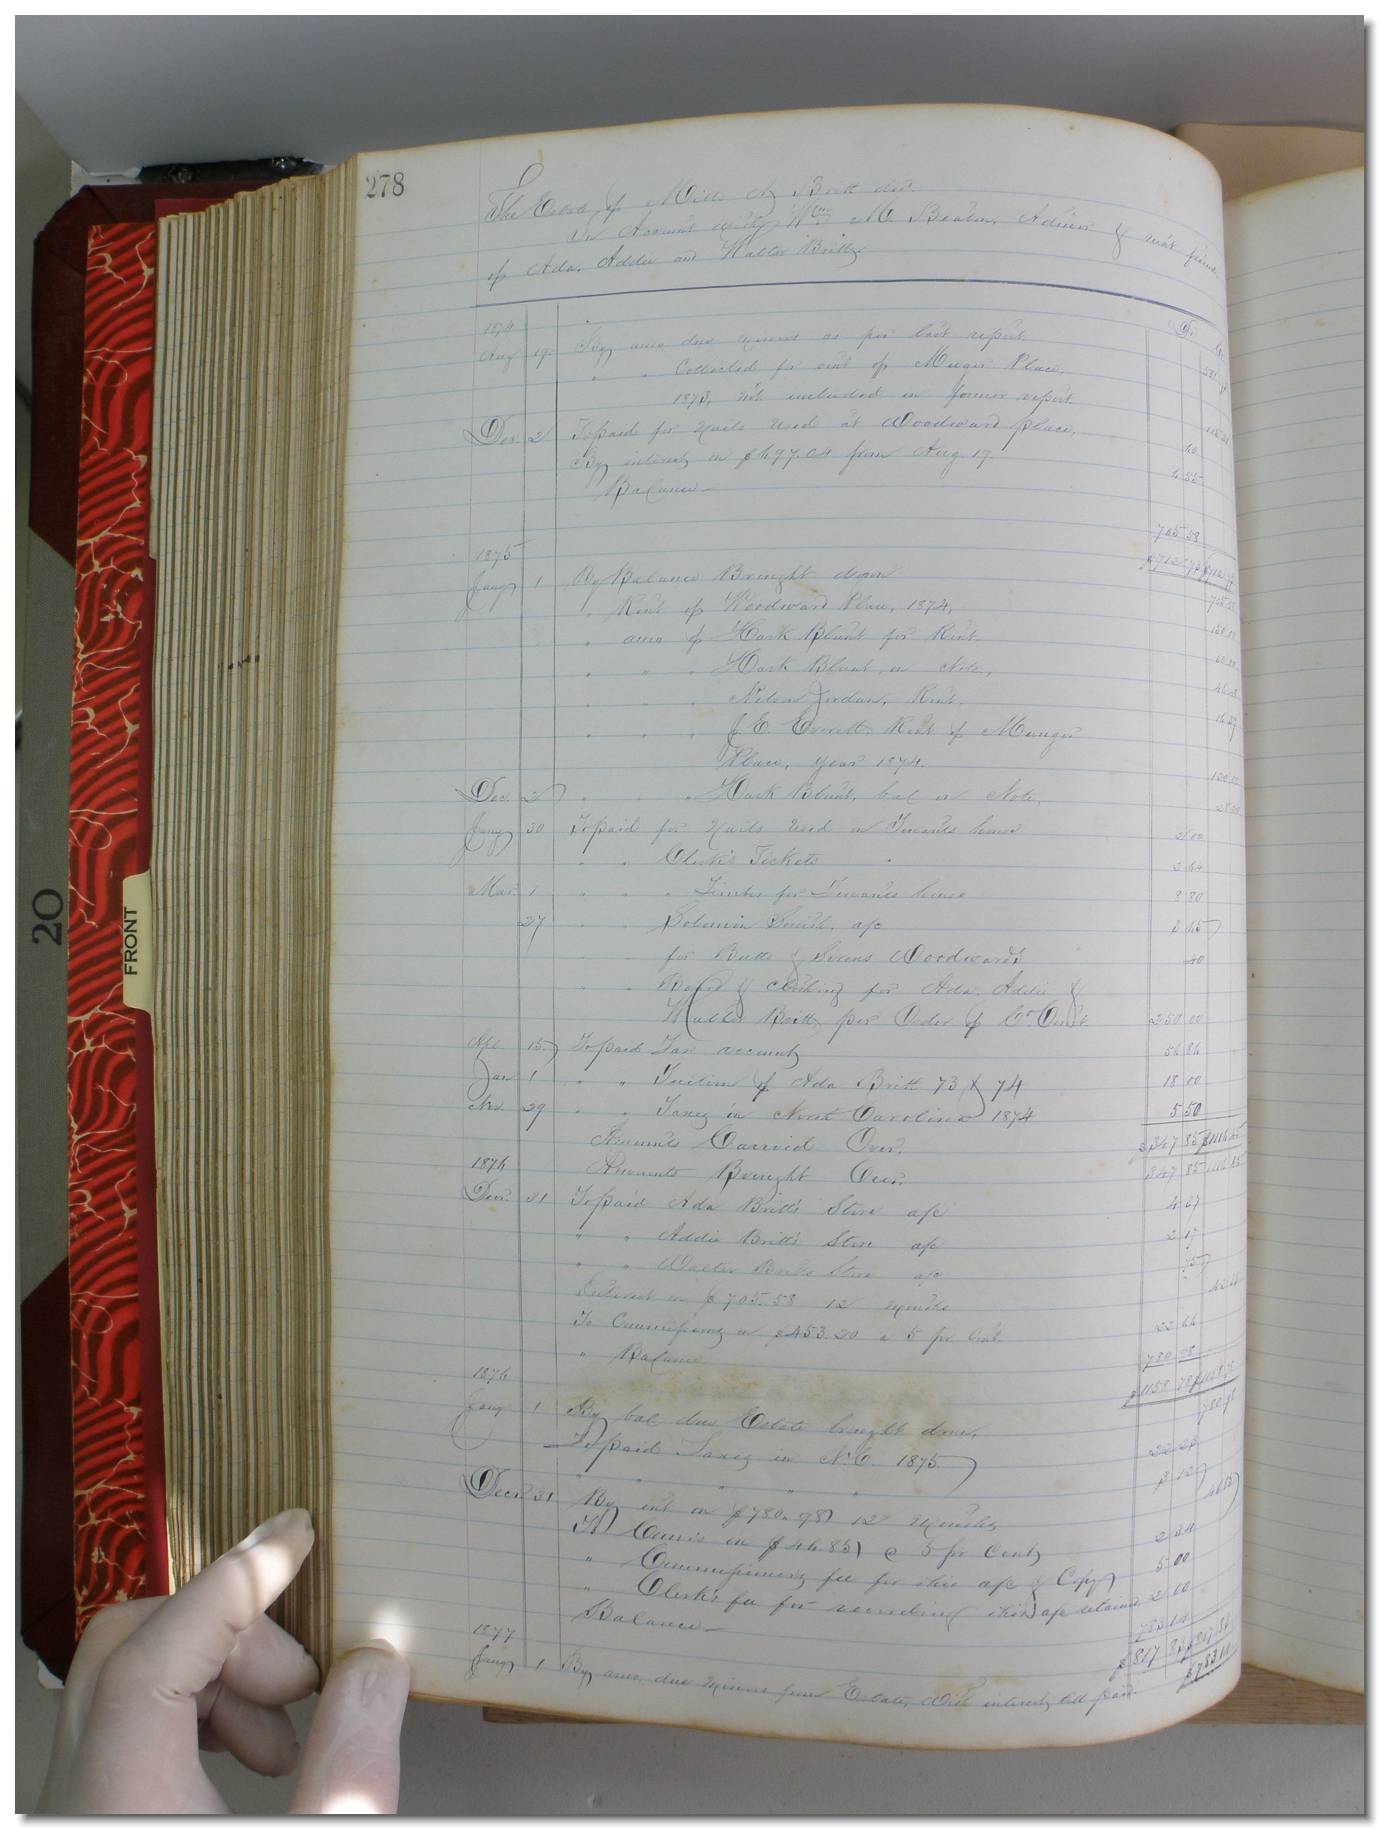 278
The Estate of Mills Britt decd.
In Account with Wm. M. Beaton, Admior & next friend
of Ada, Addie and Walter Britt
Dr. Cr.
1874
Aug 19 By amo due minors as per last report
" " Collected for rent of Munger Place,
1873, not included in former report
Dec. 2 To paid for Nails used at Woodward place,
By interest on $697.04 from Aug 19.
Balance 705 58
1875
Jany 1 By Balance Brought down 705.58
" Rent of Woodward Place, 1874,
" amo of Hark Blunt for Rent.
" " " Hark Blunt on Note,
" " " Nelson Jordan, Rent.
" " " J. E. Everett, Rent of Munger
Place, year 1874. 120.00
Dec. 2 " " " Hark Blunt, bal on Note,
Jany 30 To paid for Nails used on Tenants house 2 00
" " Clerk's Tickets 2 64
Mar. 1 " " " Timber for Tenants house 8 80
27 " " Smith, a/c
for Butts & Screws Woodwards 40
" " Board & clothing for Ada, Addie &
Walter Britt, per Order of Co. Court. 250 00
Apl. 15 To paid Tax account
Jan 1 " " Tuition of Ada Britt 73 & 74 18 00
29 " " Taxes in North Carolina 1874 5 50
Amounts Carried Over. $347 85 $1116.45
1876 Amounts Brought Over. 347 85 1116.45
Decr. 31 To paid Ada Britt's Store a/c 4 67
" " Addie Britt's Store a/c 2 17
" " Walter Britts Store a/c
Interest on $705.58 12 months
To Commissions on $453.20 @ 5 per Cent. 22 66
" Balance 780 98
1876 $1158 78 $1158 78
Jany 1 By bal due Estate brought down, 780.98
To paid Taxes in N.C. 1875
" " " "
Decr. 31 By int on $780.98 12 months 46.85
To Comis on $46.85 @ 5 per Cent 2 34
" Commissioners fee for this a/c & Copy 5 00
" Clerk's fee for recording this a/c retained 2 00
Balance 783 14
1877 $817 84 $817 84
Jany 1 By amo. due minors from Estate, with interest till paid. $783.14